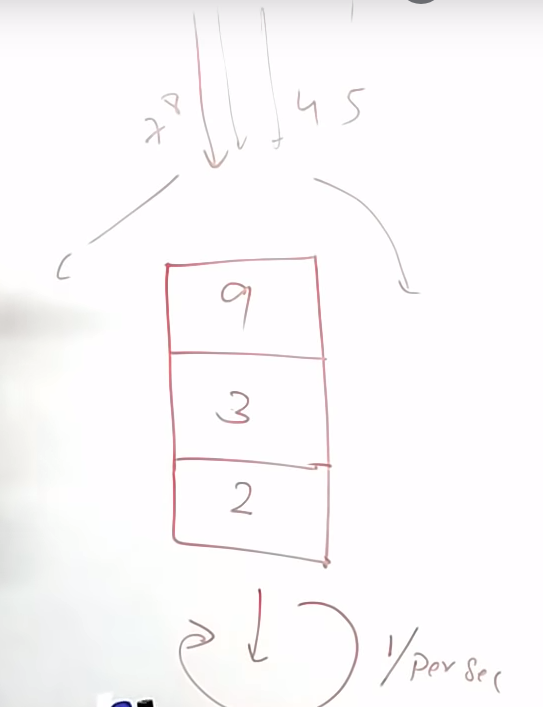 7 8
4 5
9
3
2
1/per sec